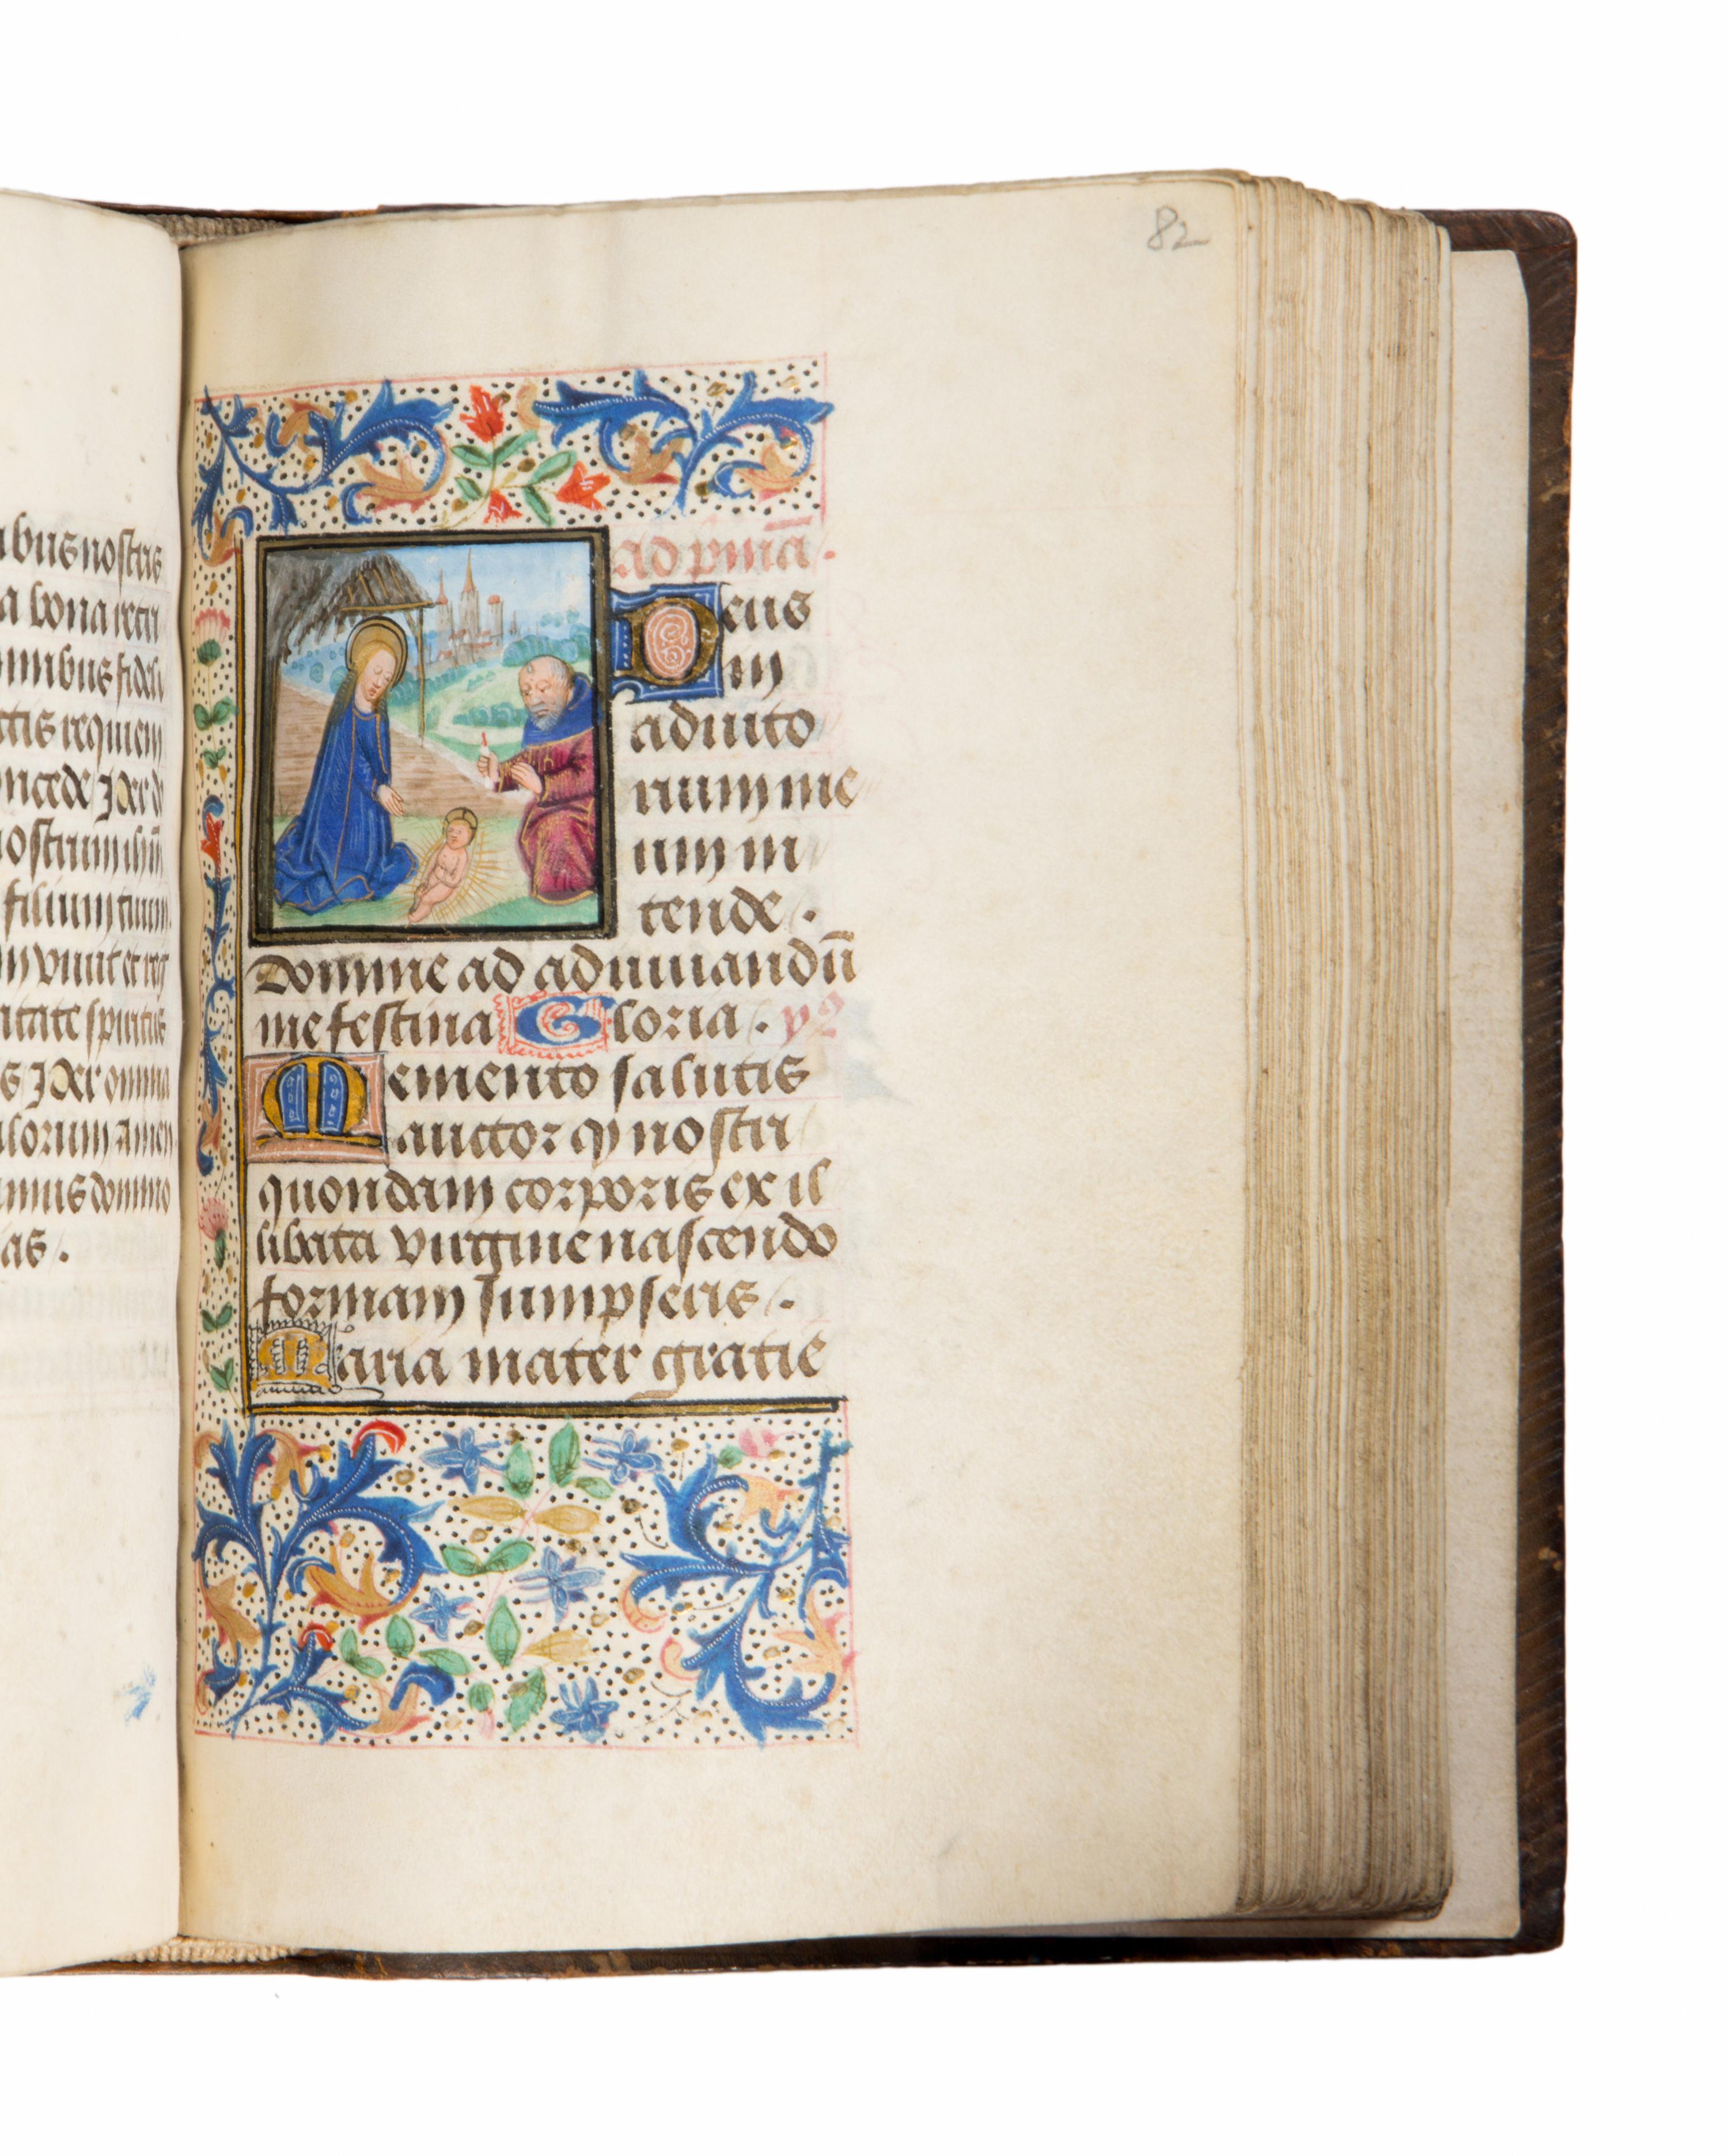 ibus nostris
a bona retri
mnibus fideli
ctis requiem
ncede ꝑ er d
ostrum ihm̄
filium tuum.
m viuit et reg
itate spiritus
s ꝑ er omnia
ulorum amen
amus domino
as.
82
ad pimā.
Deus
in
adiuto
rium me
um in
tende.
Domine ad adiuuandū
me festina Gloria. ys
Memento salutis
auctor qͥ nostri
quondam corporis ex il
libata virgine nascendo
formam sumpseris.
Maria mater gratie